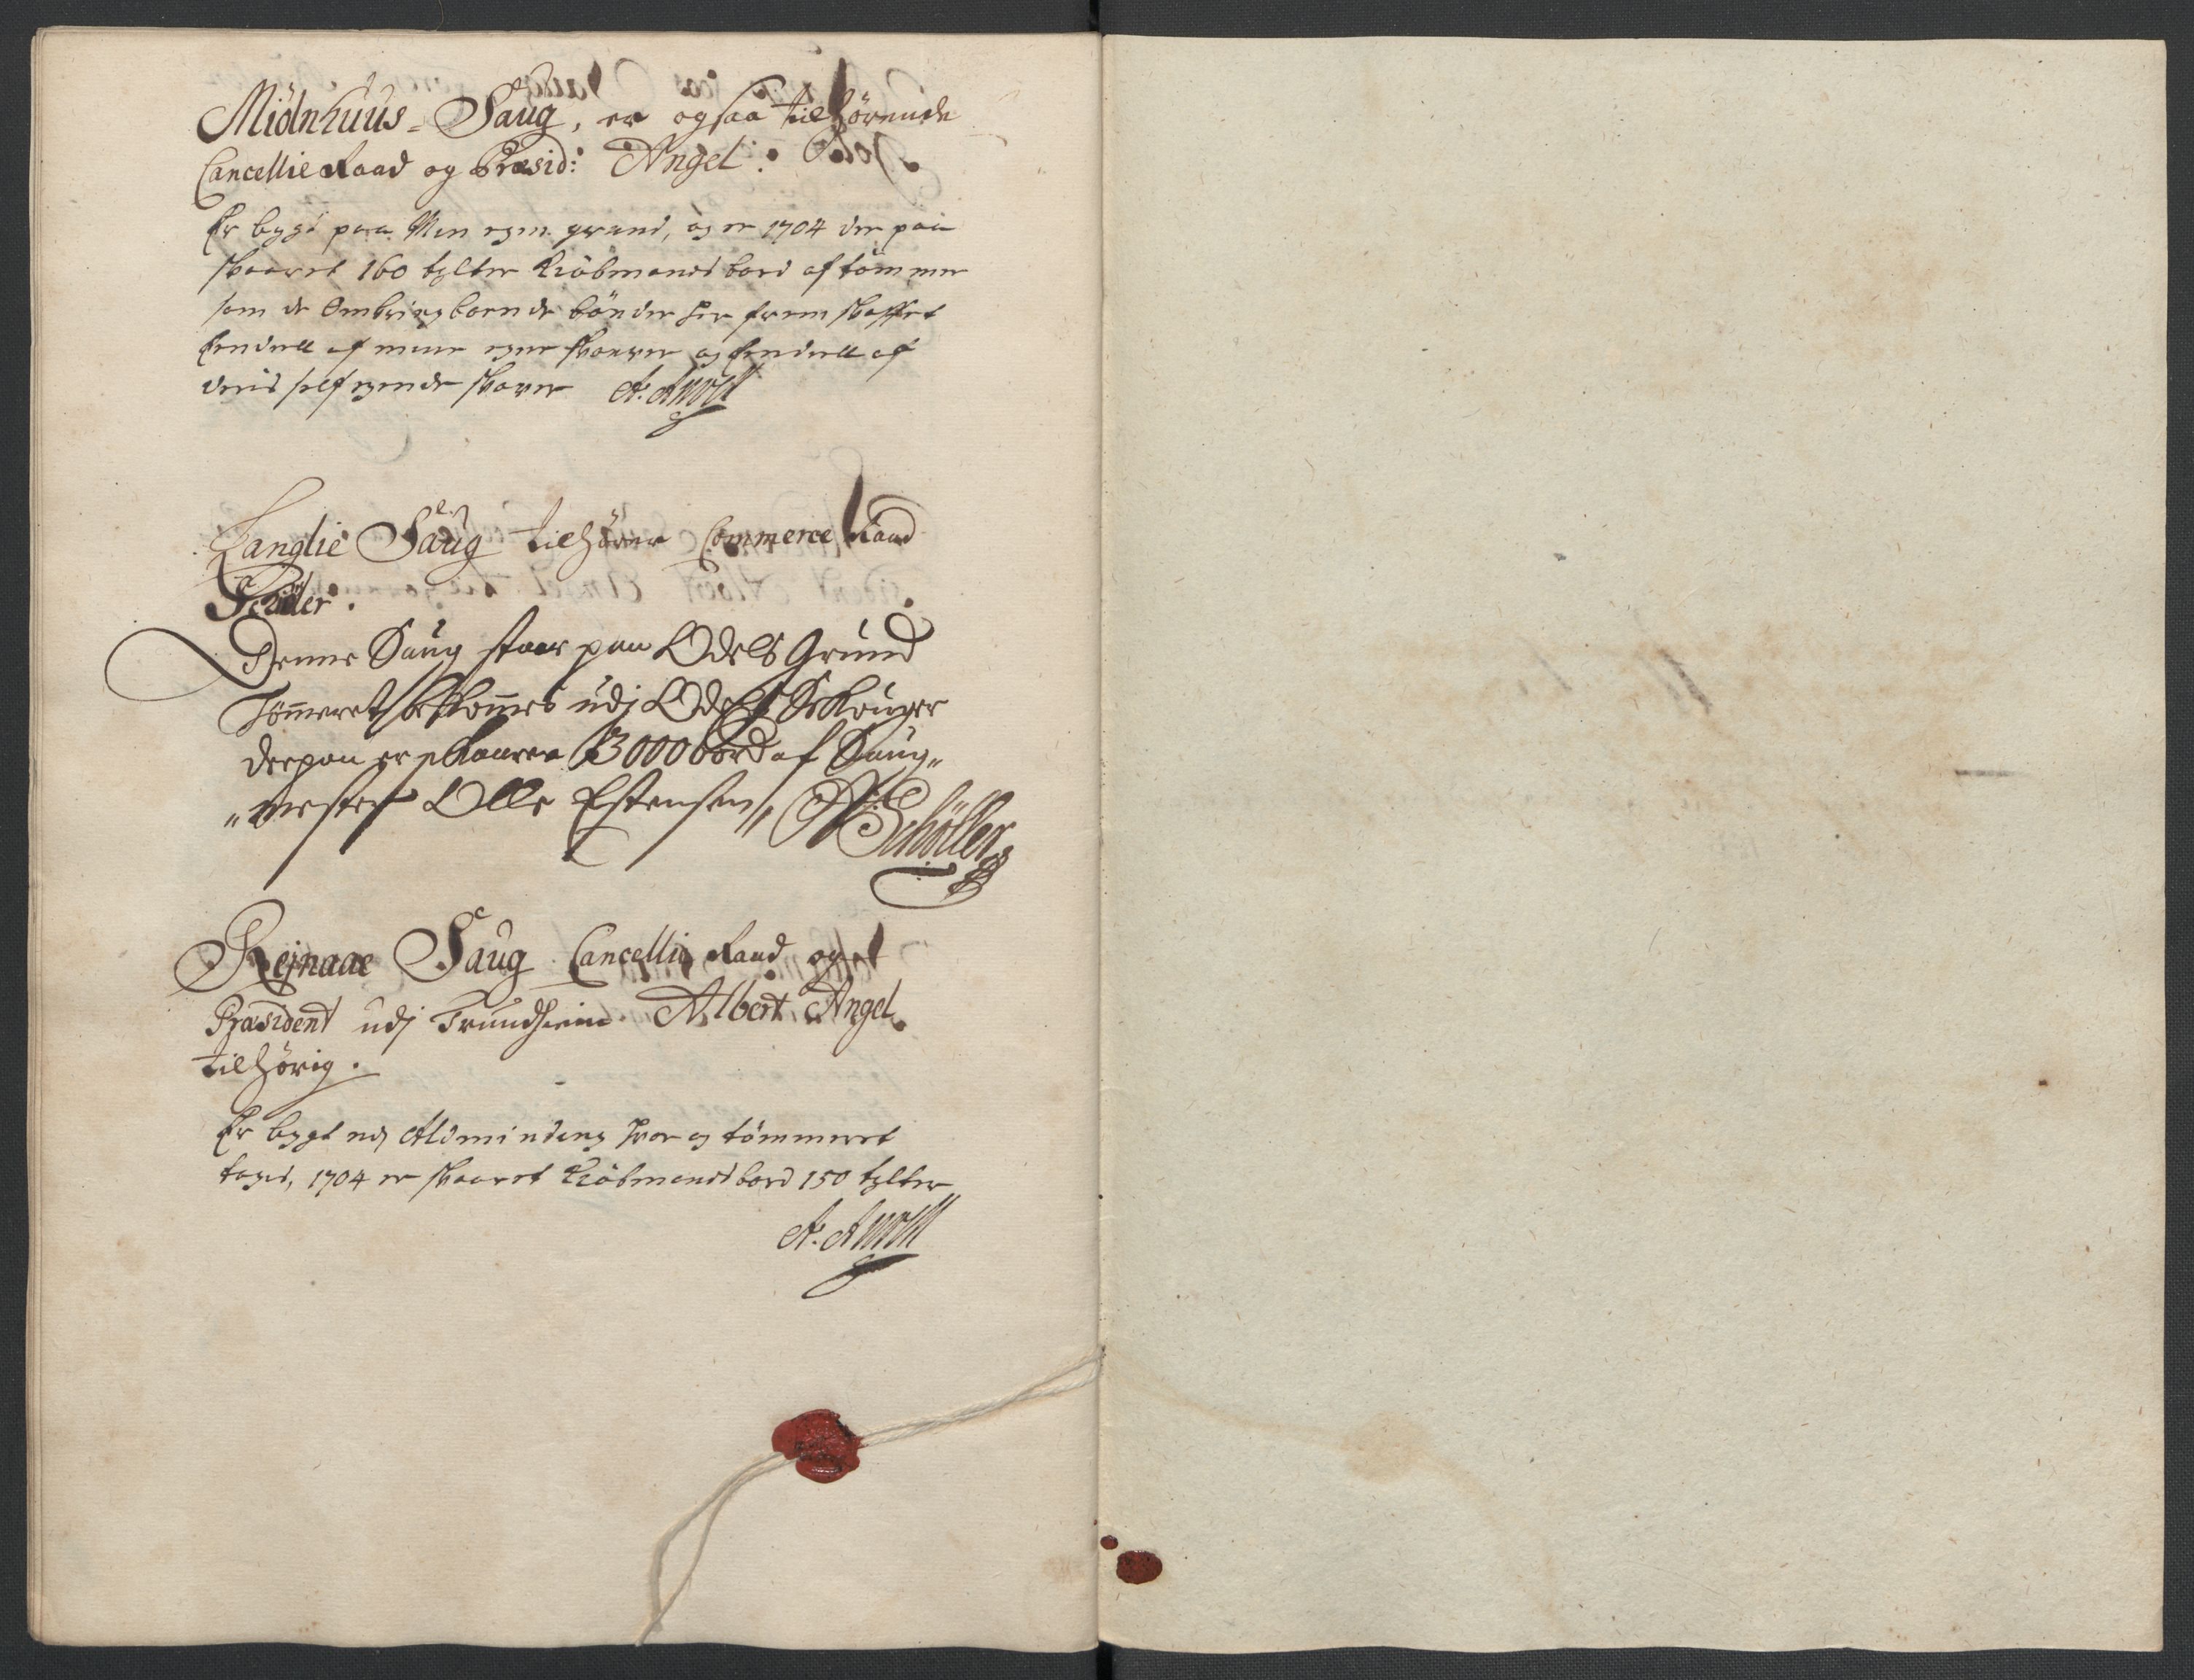 Miölnhuus-Saug, er ogsaa tilhörende
Cancellie Raad og Præsid: Angel.
Er bygt paa Min egen grund, og er 1704 der paa
skaaret 160 tylter Kiöbmands bord af tömmer
som de Omkringboende bönder her frem skaffet
Eendeell af mine egne skouer og Eendeell af
deris self egende skouer A. Angell
Langlie Saug tilhörer Commerce Raad
Schöller.
Denne Saug staar paa Odels Grund
Tömmeret bekommes udj Odels Skouger
derpaa er skaaren 3000 bord af Saug-
mester Olle Estensen, Schöller
Rejnaae Saug Cancellie Raad og
Præsident udj Trundhiem Albert Angel
tilhörig.
Er bygt udj Alminding hvor og tömmeret
tages, 1704 er skaaret Kiöbmands bord 150 tylter
A. Angell